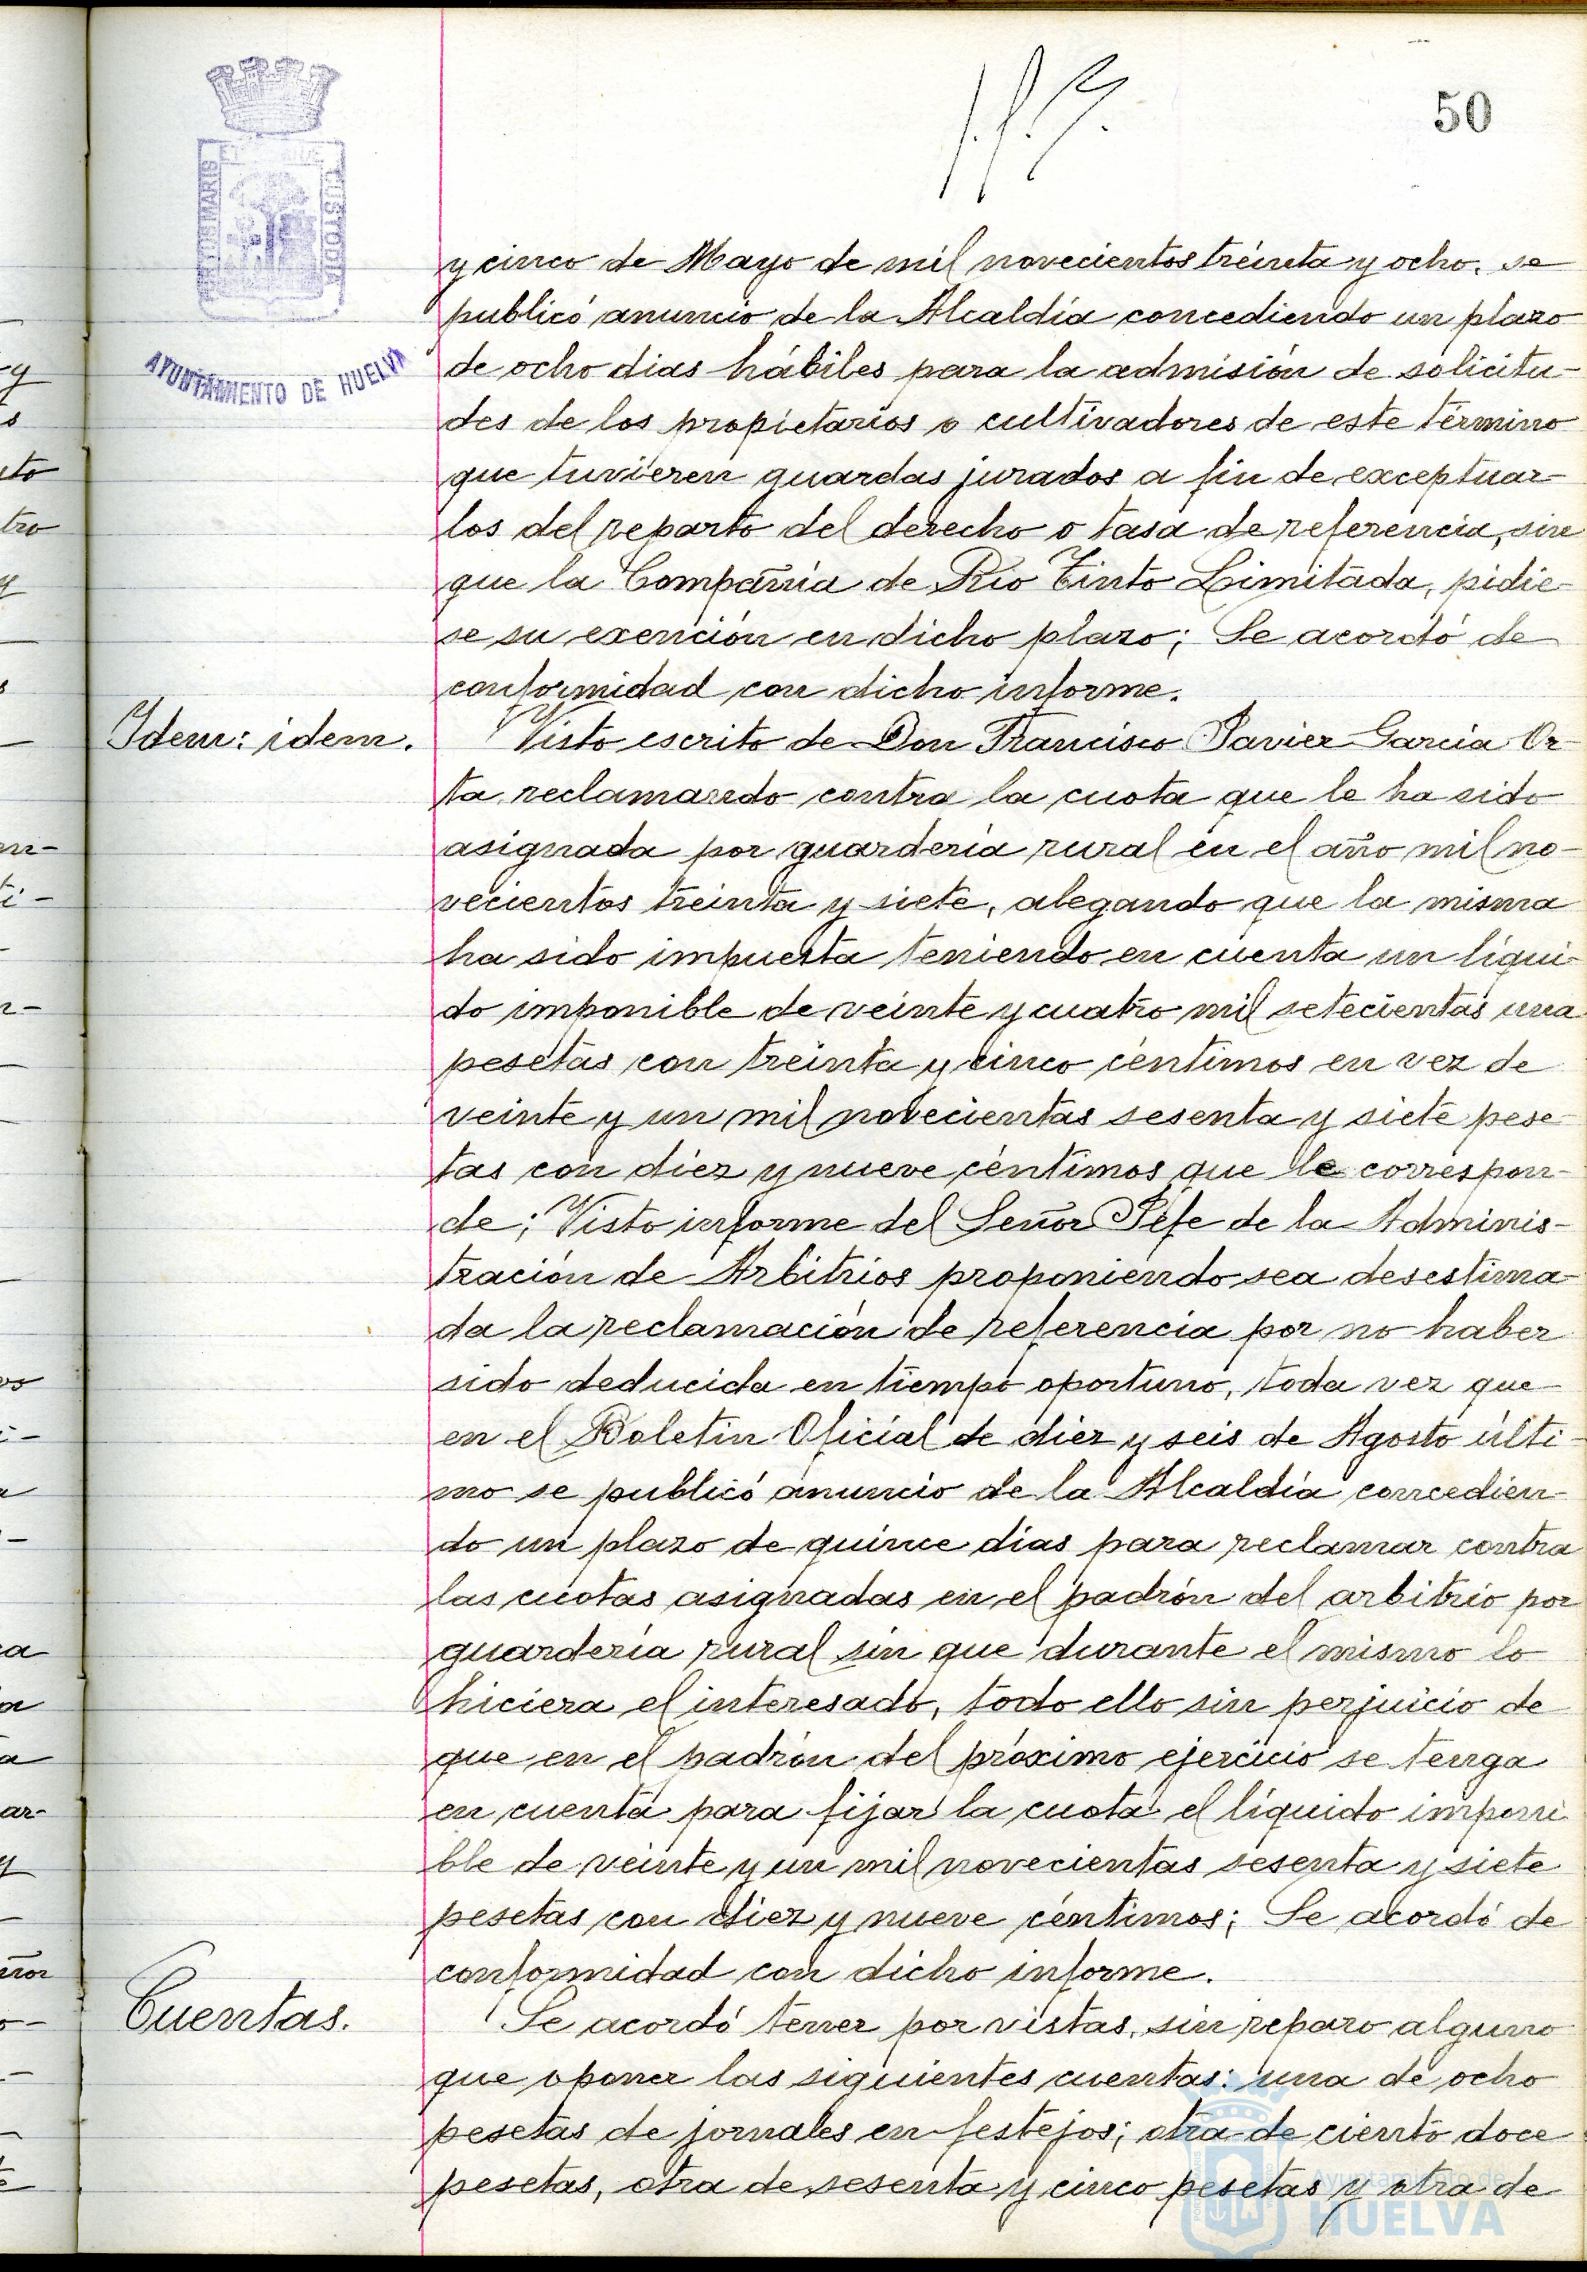 50
PORTUS MARIS ET TERRAE CUSTODIA
AYUNTAMIENTO DE HUELVA
y cinco de Mayo de mil novecientos treinta y ocho, se
publicó anuncio de la Alcaldía concediendo un plazo
de ocho dias hábiles para la admisión de solicitu-
des de los propietarios o cultivadores de este término
que tuvieren guardas jurados a fin de exceptuar-
los del reparto del derecho o tasa de referencia, sin
que la Compañia de Rio Tinto Limitada, pidie-
se su exención en dicho plazo; Se acordó de
conformidad con dicho informe.
Idem: idem.
Visto escrito de Don Francisco Javier Garcia Or-
ta reclamando contra la cuota que le ha sido
asignada por guardería rural en el año mil no-
vecientos treinta y siete, alegando que la misma
ha sido impuesta teniendo en cuenta un líqui-
do imponible de veinte y cuatro mil setecientas una
pesetas con treinta y cinco céntimos en vez de
veinte y un mil novecientas sesenta y siete pese-
tas con diez y nueve céntimos que le correspon-
de; Visto informe del Señor Jefe de la Adminis-
tración de Arbitrios proponiendo sea desestima-
da la reclamación de referencia por no haber
sido deducida en tiempo oportuno, toda vez que
en el Boletin Oficial de diez y seis de Agosto últi-
mo se publicó anuncio de la Alcaldía concedien-
do un plazo de quince dias para reclamar contra
las cuotas asignadas en el padrón del arbitrio por
guardería rural sin que durante el mismo lo
hiciera el interesado, todo ello sin perjuicio de
que en el padrón del próximo ejercicio se tenga
en cuenta para fijar la cuota el líquido imponi
ble de veinte y un mil novecientas sesenta y siete
pesetas con diez y nueve céntimos; Se acordó de
conformidad con dicho informe.
Cuentas.
Se acordó tener por vistas, sin reparo alguno
que oponer las siguientes cuentas: una de ocho
pesetas de jornales en festejos; otra de ciento doce
pesetas, otra de sesenta y cinco pesetas y otra de
Ayuntamiento de
HUELVA